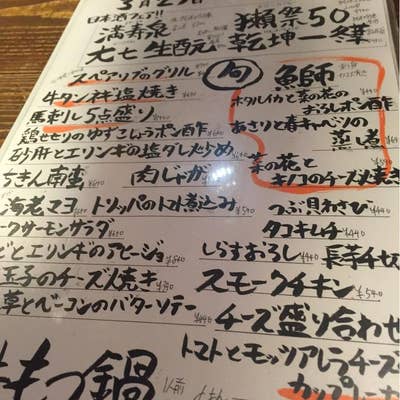 日本酒フェア!!
満寿泉 獺祭50
大七 生酛 乾坤一 冬華
スペアリブのグリル
牛タンネギ塩焼き
馬刺し5点盛り
鶏せせりのゆずこしょうポン酢 ¥640
砂肝とエリンギの塩ダレ炒め
ちきん南蛮 ¥640 肉じゃが
海老マヨ トリッパのトマト煮込み ¥540
サーモンサラダ
とエリンギのアヒージョ
玉子のチーズ焼き
草とベーコンのバターソテー
もつ鍋 1人前
旬 鰤
ホタルイカと菜の花の
おろしポン酢
あさりと春キャベツの
蒸し煮
菜の花と
キノコのチーズ焼き
つぶ貝わさび
タコキムチ ¥440
しらすおろし ¥440 長芋千切
スモークチキン ¥540
チーズ盛り合わせ
トマトとモッツアレラチーズ
カップレーゼ